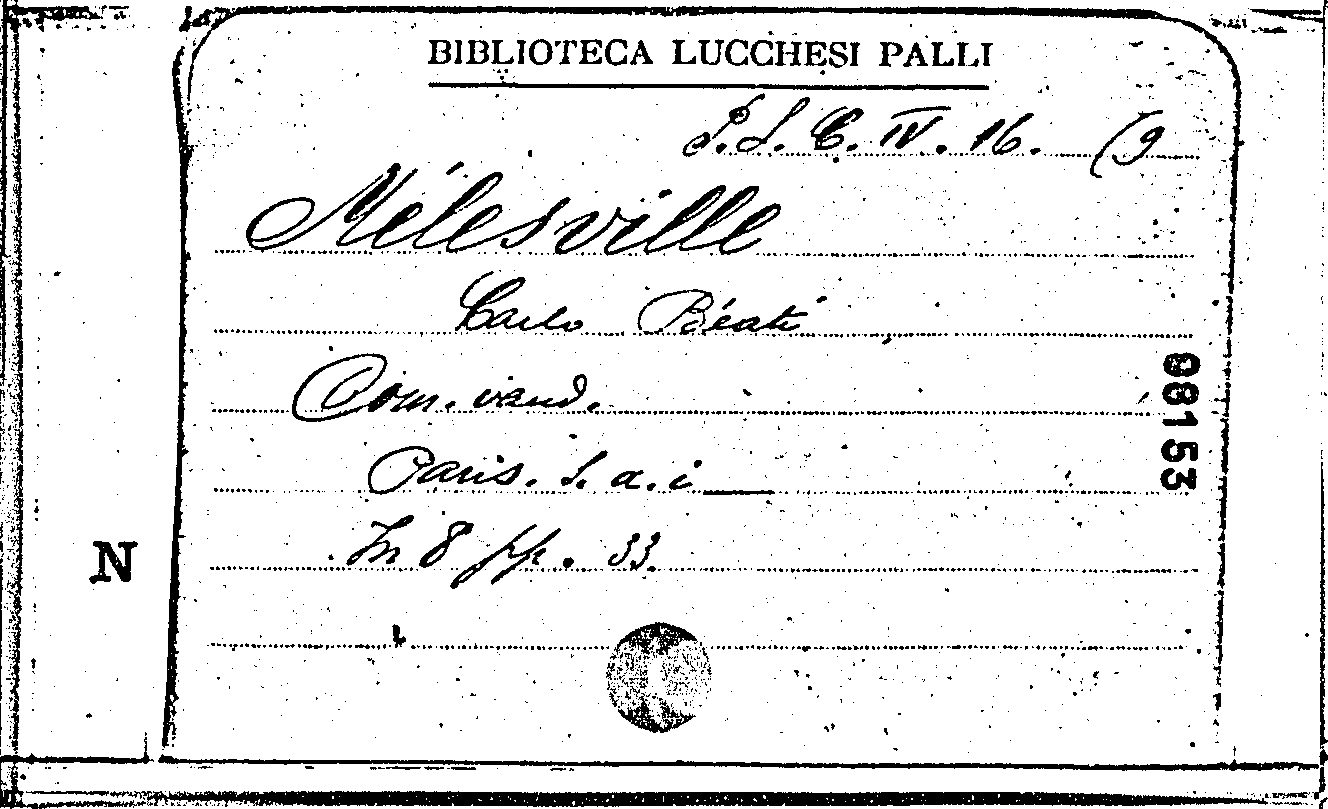 BIBLIOTECA LUCCHESI PALLI
L. C. IV. 16. (9
Mélesville
Carlo Béati
Com. vaud.
Paris. S. a. i
In 8 pp. 33.
88153
N